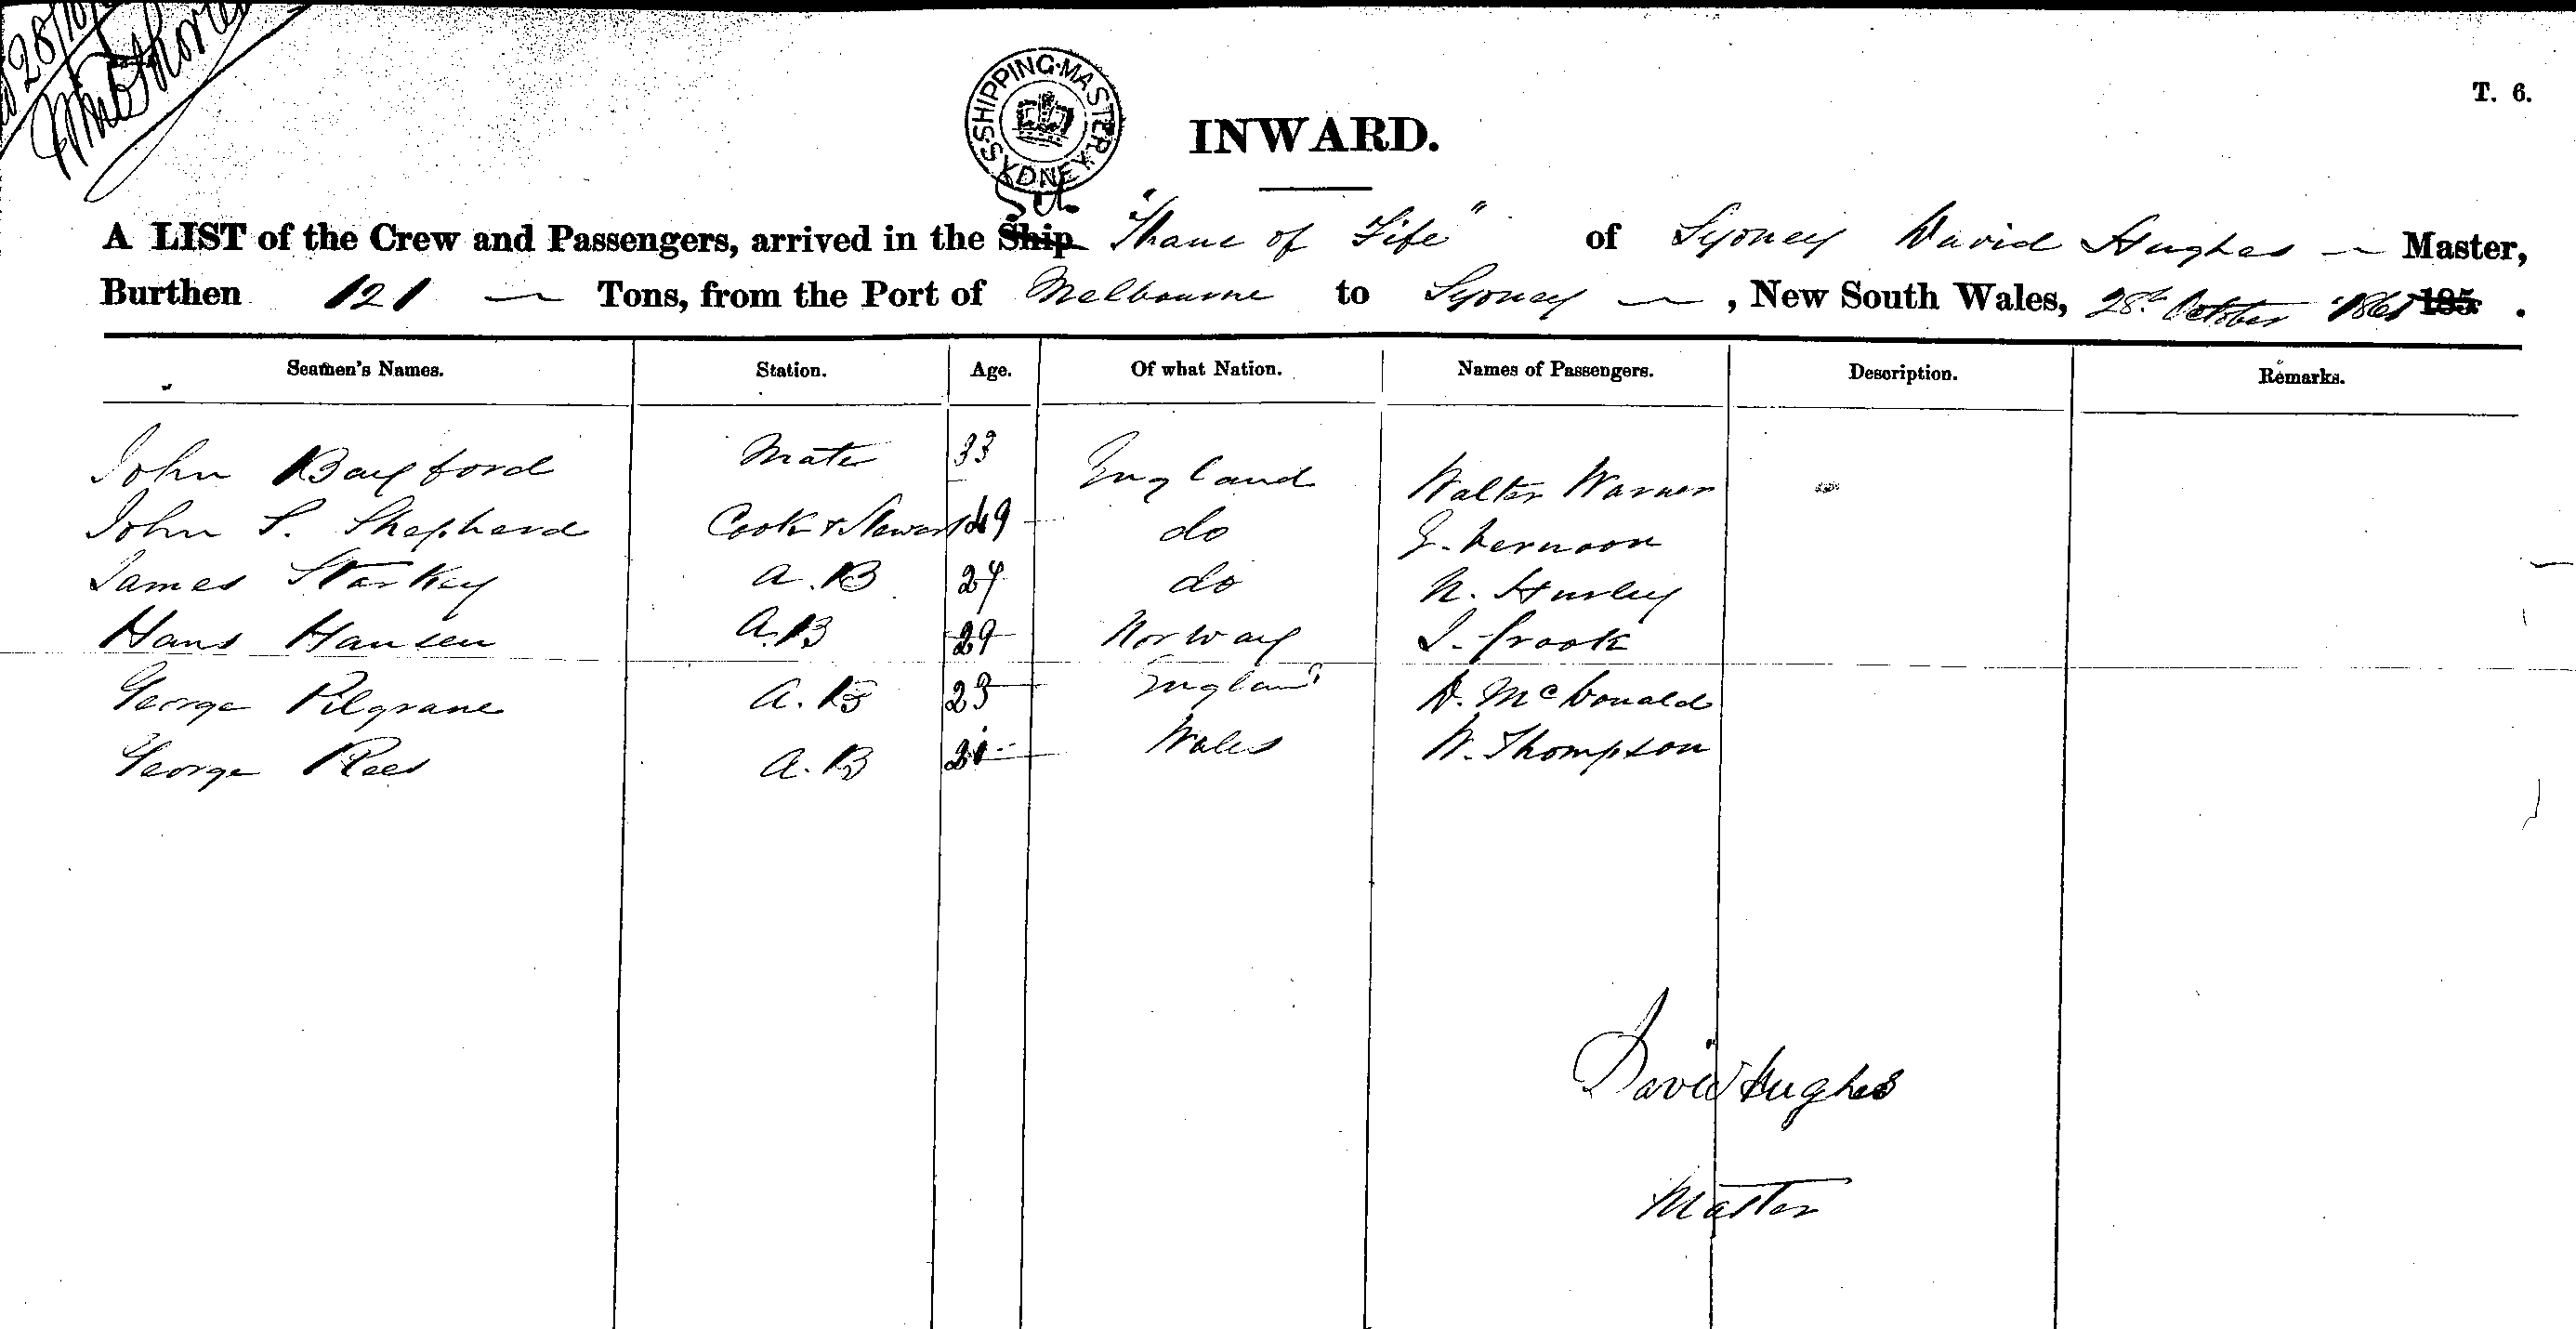 28/10
SHIPPING MASTER SYDNEY
T. 6.
INWARD.
Sch.
A LIST of the Crew and Passengers, arrived in the Ship "Thane of Fife" of Sydney David Hughes Master,
Burthen 121 Tons, from the Port of Melbourne to Sydney, New South Wales, 28th October 1861 185 .
Seamen's Names. Station. Age. Of what Nation. Names of Passengers. Description. Remarks.
John Bayford Mate 33 England Walter Warner
John S. Shepherd Cook & Steward 49 do G. Vernoon
James Starkey A.B 24 do N. Hurley
Hans Hansen A.B 29 Norway J. Crook
George Pilgrane A.B 23 England D. McDonald
George Rees A.B Wales W. Thompson
David Hughes
Master